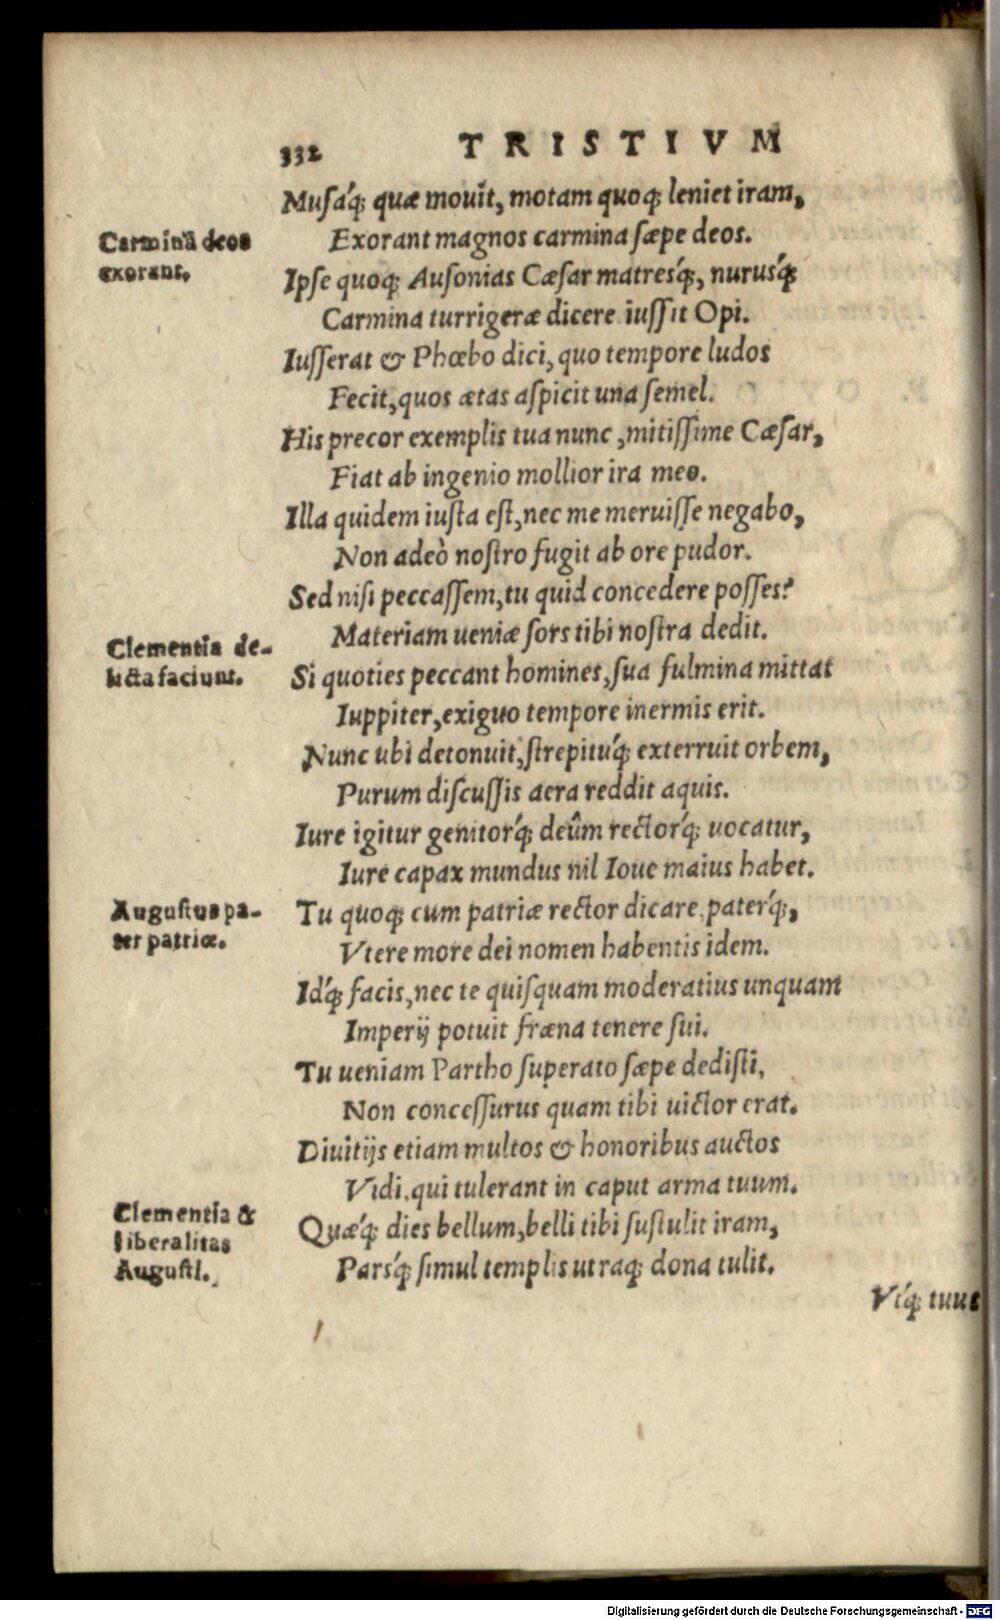 332 TRISTIVM
Musáq; quæ mouit, motam quoq; leniet iram,
Exorant magnos carmina sæpe deos.
Carmina deos
exorant.
Ipse quoq; Ausonias Cæsar matresq́;, nurusq́;
Carmina turrigeræ dicere iussit Opi.
Iusserat & Phœbo dici, quo tempore ludos
Fecit, quos ætas aspicit una semel.
His precor exemplis tua nunc, mitissime Cæsar,
Fiat ab ingenio mollior ira meo.
Illa quidem iusta est, nec me meruisse negabo,
Non adeò nostro fugit ab ore pudor.
Sed nisi peccassem, tu quid concedere posses?
Materiam ueniæ sors tibi nostra dedit.
Clementia de-
licta faciunt.
Si quoties peccant homines, sua fulmina mittat
Iuppiter, exiguo tempore inermis erit.
Nunc ubi detonuit, strepituq́; exterruit orbem,
Purum discussis aera reddit aquis.
Iure igitur genitorq́; deûm rectorq́; uocatur,
Iure capax mundus nil Ioue maius habet.
Augustus pa-
ter patriæ.
Tu quoq; cum patriæ rector dicare, paterq́;,
Vtere more dei nomen habentis idem.
Idq́; facis, nec te quisquam moderatius unquam
Imperij potuit fræna tenere sui.
Tu ueniam Partho superato sæpe dedisti,
Non concessurus quam tibi uictor erat.
Diuitijs etiam multos & honoribus auctos
Vidi, qui tulerant in caput arma tuum.
Clementia &
liberalitas
Augusti.
Quæq́; dies bellum, belli tibi sustulit iram,
Parsq́; simul templis utraq; dona tulit.
Vtq́; tuus
Digitalisierung gefördert durch die Deutsche Forschungsgemeinschaft - DFG